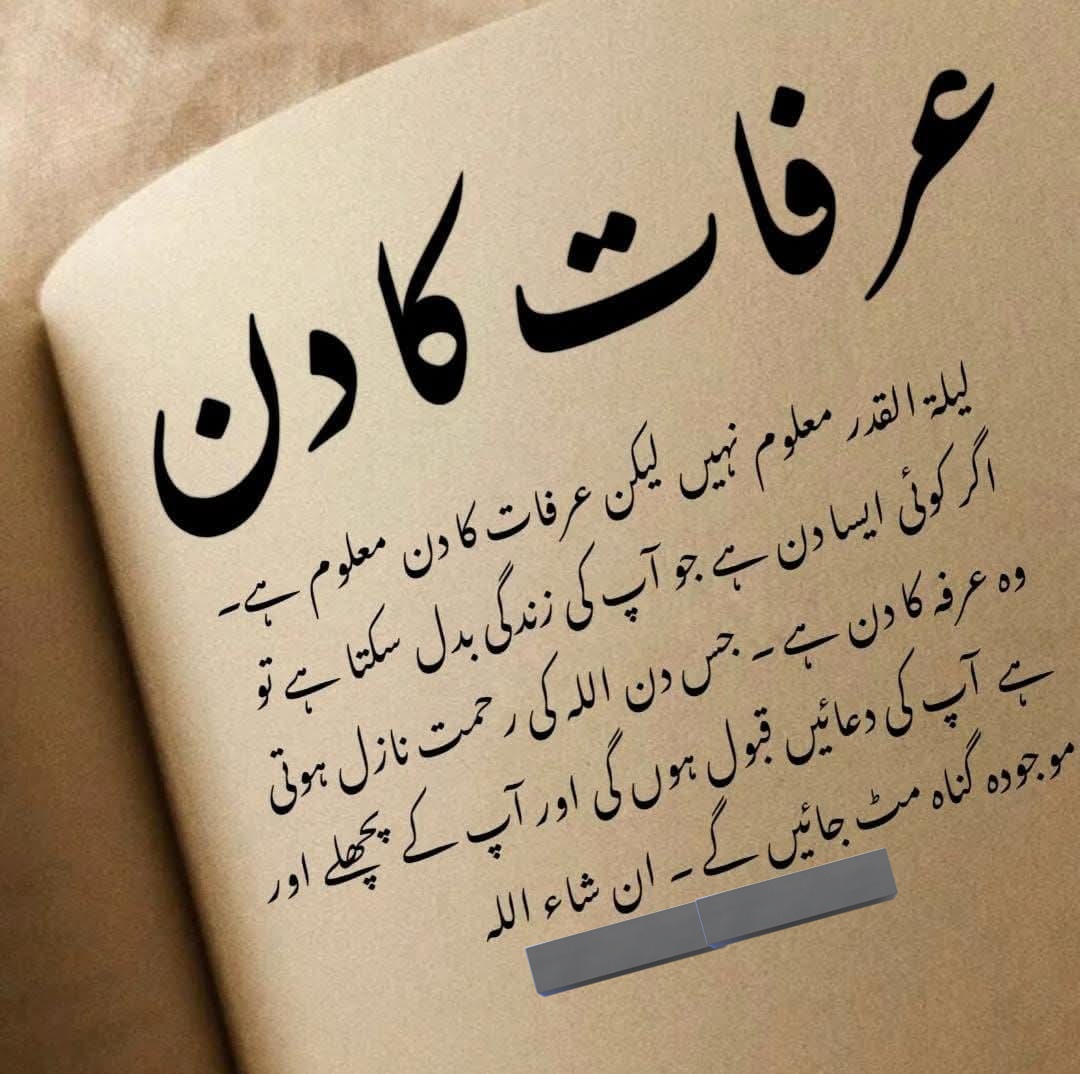 عرفات کا دن
لیلۃ القدر معلوم نہیں لیکن عرفات کا دن معلوم ہے۔
اگر کوئی ایسا دن ہے جو آپ کی زندگی بدل سکتا ہے تو
وہ عرفہ کا دن ہے۔ جس دن اللہ کی رحمت نازل ہوتی
ہے آپ کی دعائیں قبول ہوں گی اور آپ کے پچھلے اور
موجودہ گناہ مٹ جائیں گے۔ ان شاء اللہ